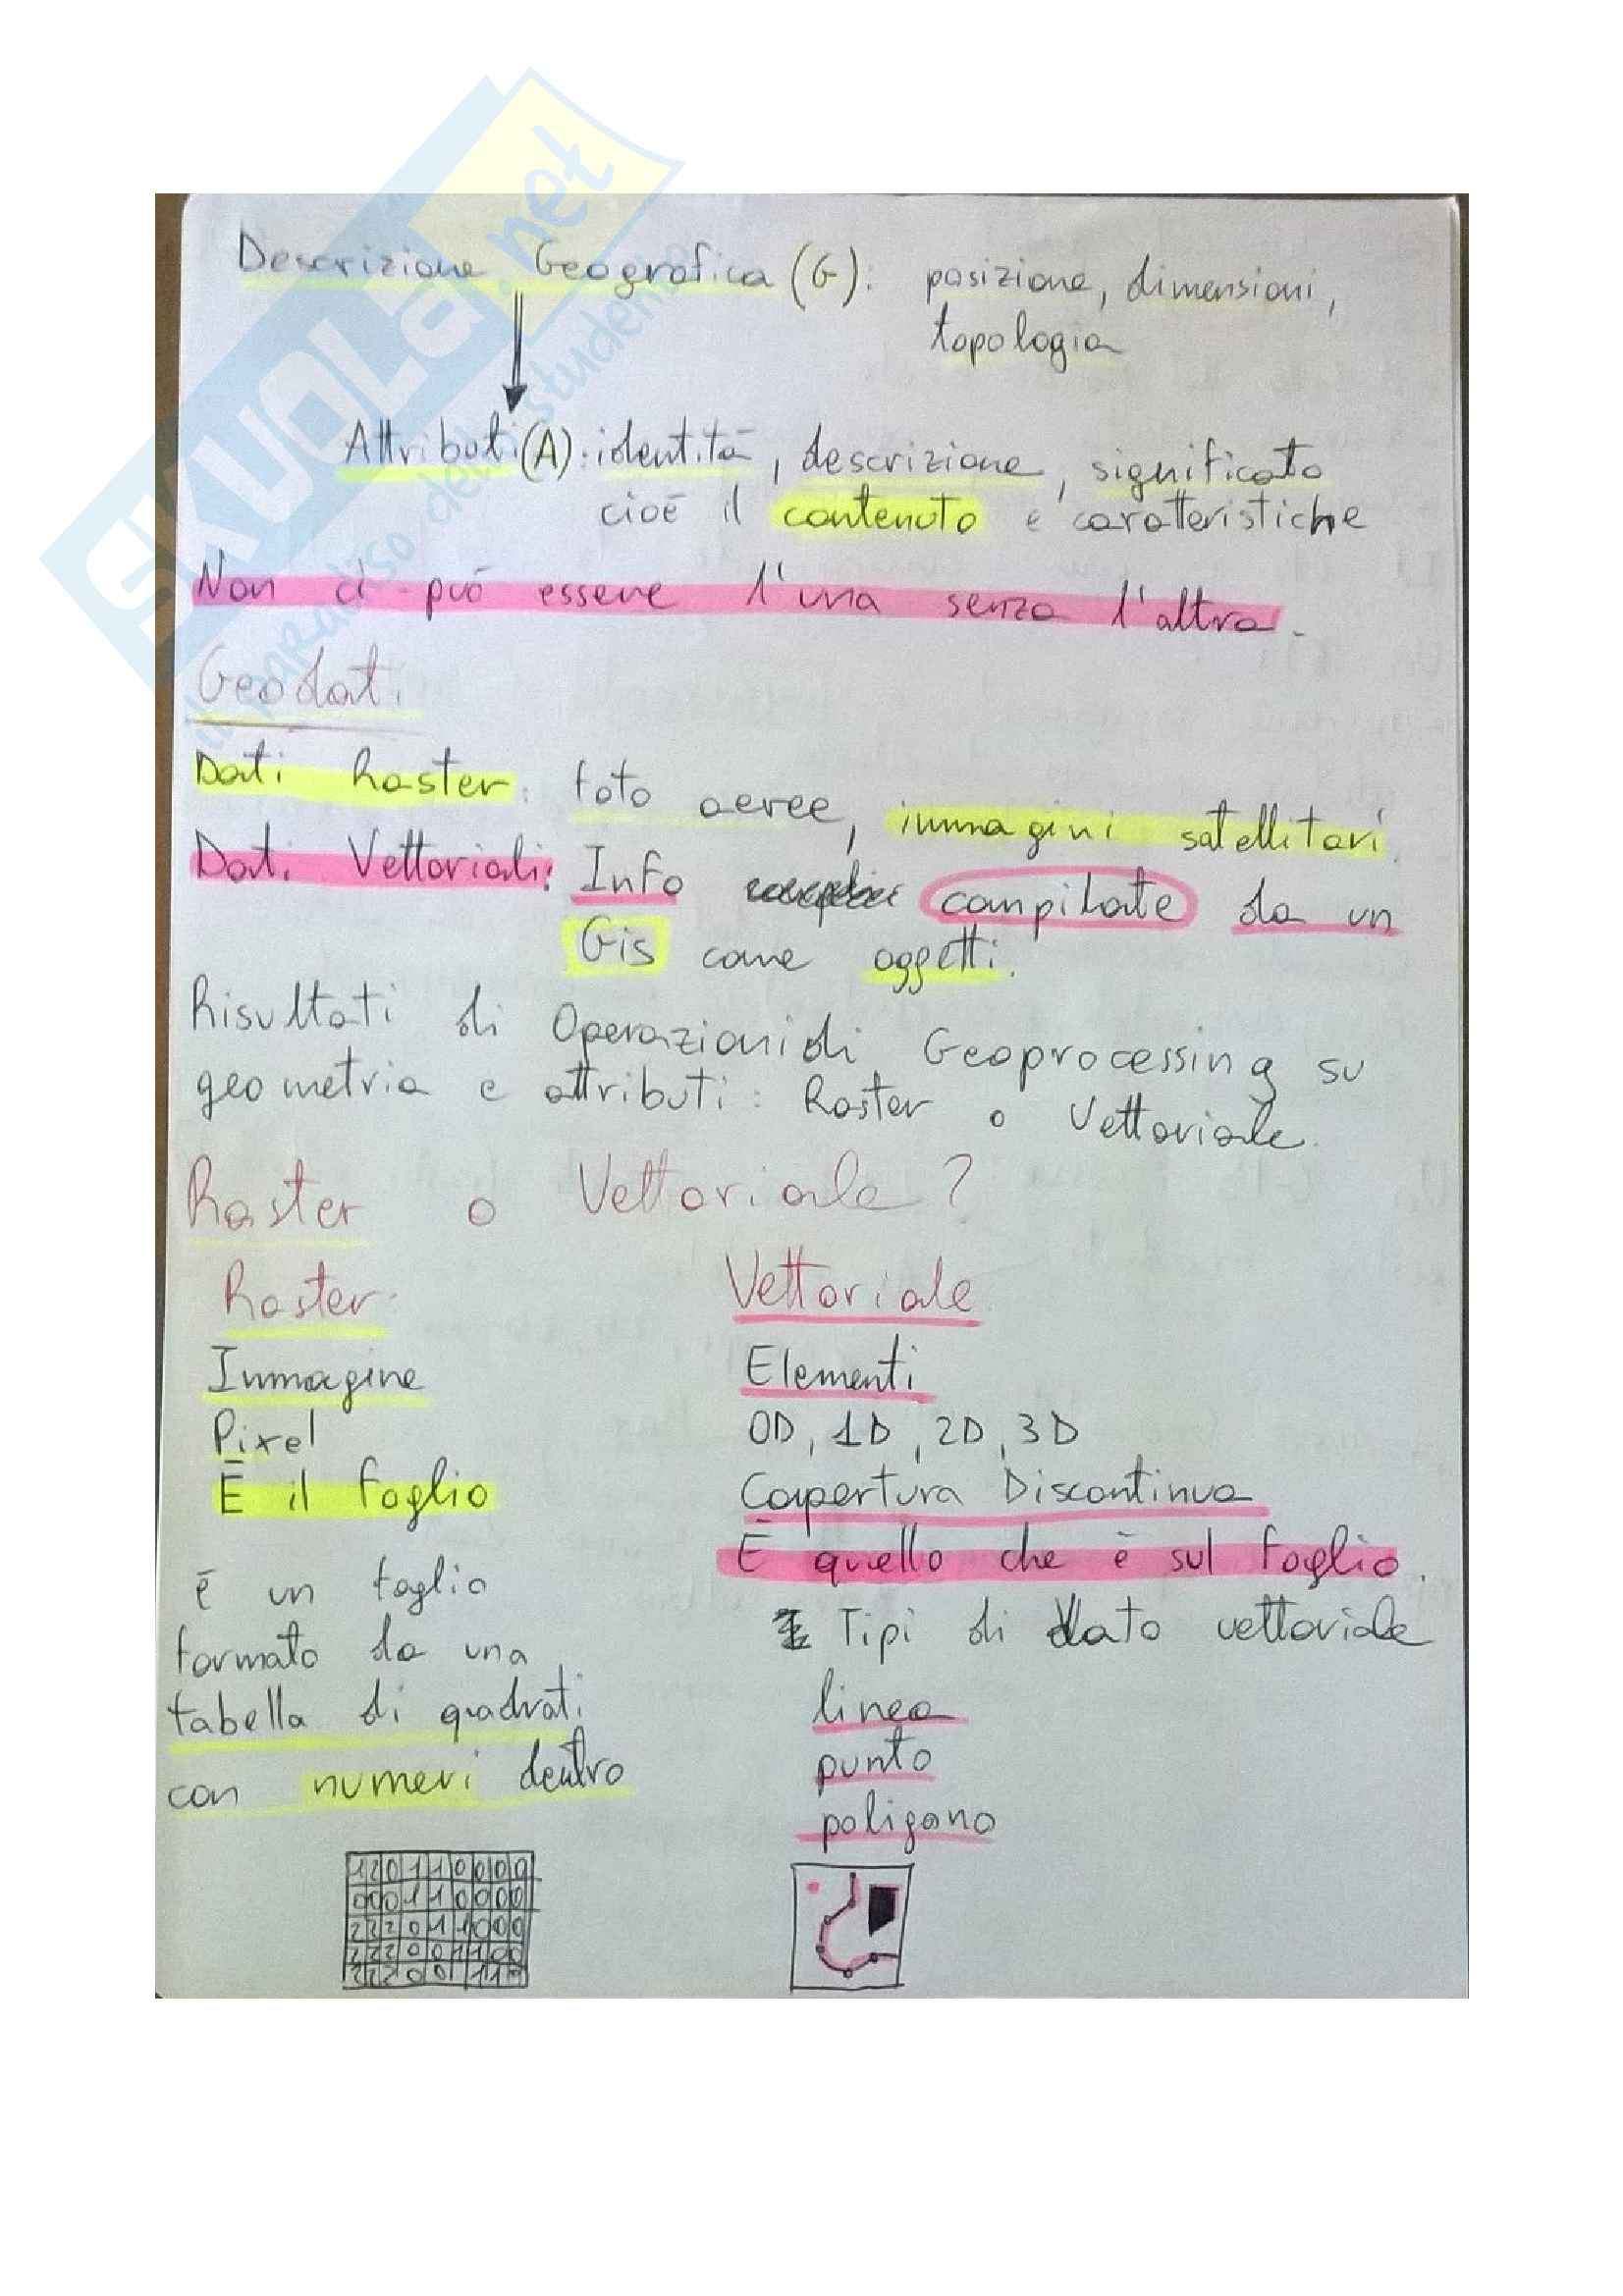 SKUOLA.net
il paradiso dello studente
Descrizione Geografica (G): posizione, dimensioni,
topologia
Attributi (A): identità, descrizione, significato
cioè il contenuto e caratteristiche
Non ci può essere l'una senza l'altra.
Geodati
Dati Raster: foto aeree, immagini satellitari.
Dati Vettoriali: Info compilate da un
Gis come oggetti.
Risultati di Operazioni di Geoprocessing su
geometria e attributi: Raster o Vettoriale.
Raster o Vettoriale?
Raster
Immagine
Pixel
È il foglio
è un foglio
formato da una
tabella di quadrati
con numeri dentro
1 2 0 1 1 0 0 0 0
0 0 0 1 1 0 0 0 0
2 2 2 0 1 1 0 0 0
2 2 2 0 0 1 1 0 0
2 2 2 0 0 1 1
Vettoriale
Elementi
0D, 1D, 2D, 3D
Copertura Discontinua
È quello che è sul foglio.
Tipi di dato vettoriale
linea
punto
poligono